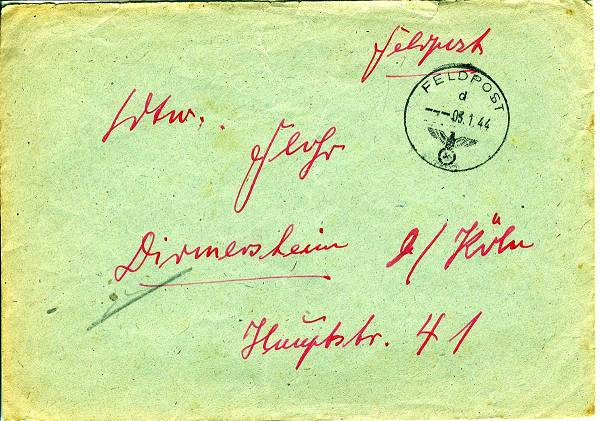 Feldpost
FELDPOST
d
--- 03.1.44
Ldtw.
Flohr
Dirmersheim b/ Köln
Hauptstr. 41